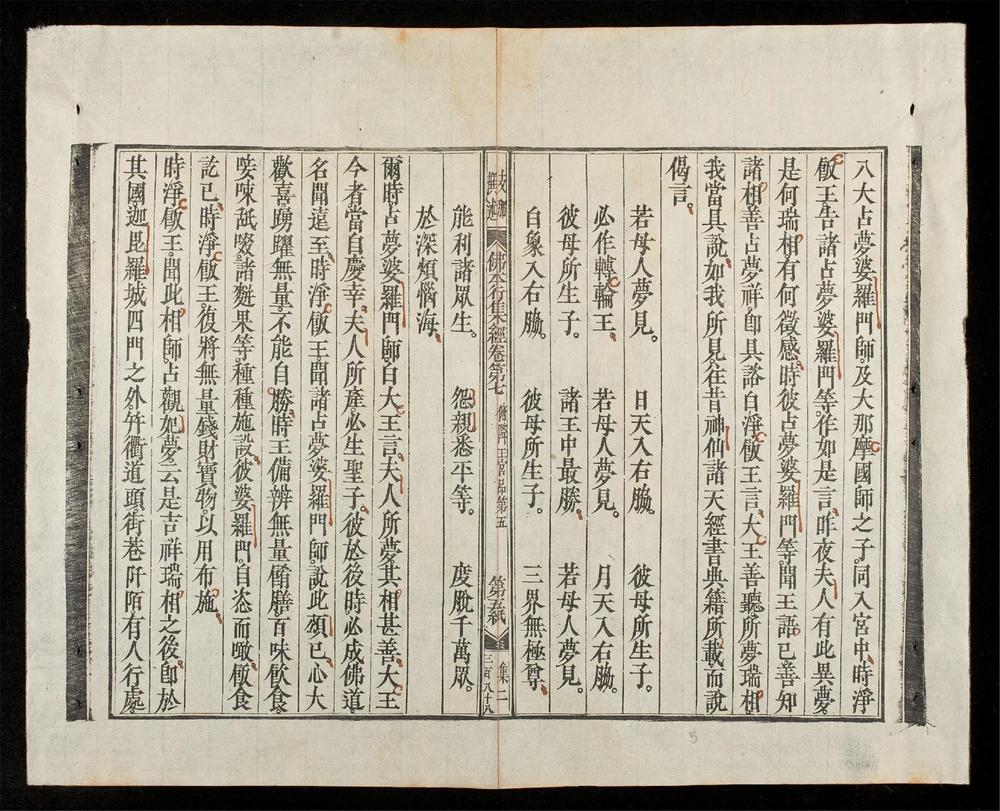 八大占夢婆羅門師。及大那摩國師之子。同入宮中。時淨
飯王。告諸占夢婆羅門等。作如是言。昨夜夫人有此異夢。
是何瑞相。有何徵感。時彼占夢婆羅門等。聞王語已。善知
諸相。善占夢祥。即具諮白淨飯王言。大王善聽。所夢瑞相。
我當具說。如我所見。往昔神仙諸天。經書典籍所載。而說
偈言。
若母人夢見。 日天入右脇。 彼母所生子。
必作轉輪王。 若母人夢見。 月天入右脇。
彼母所生子。 諸王中最勝。 若母人夢見。
白象入右脇。 彼母所生子。 三界無極尊。
佛本行集經卷第七 俯降王宮品第五 第五紙 集二
三百八十八
能利諸眾生。 怨親悉平等。 度脫千萬眾。
於深煩惱海。
爾時占夢婆羅門師。白大王言。夫人所夢。其相甚善。大王
今者。當自慶幸。夫人所產。必生聖子。彼於後時。必成佛道。
名聞遠至。時淨飯王。聞諸占夢婆羅門師說此頌已。心大
歡喜。踴躍無量。不能自勝。時王備辨無量餚膳百味飲食。
唼唻䑛啜。諸麨果等。種種施設。彼婆羅門。自恣而噉。飯食
訖已。時淨飯王。復將無量錢財寶物。以用布施。
時淨飯王。聞此相師。占觀妃夢。云是吉祥瑞相之後。即於
其國。迦毘羅城四門之外。竝衢道頭。街巷阡陌。有人行處。
5